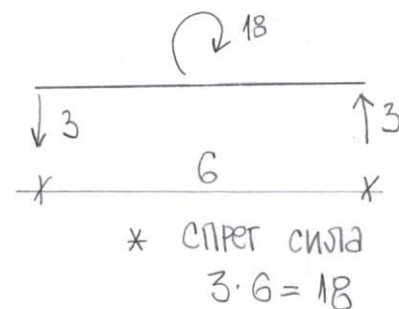 18
3
3
6
* спрег сила
3·6=18